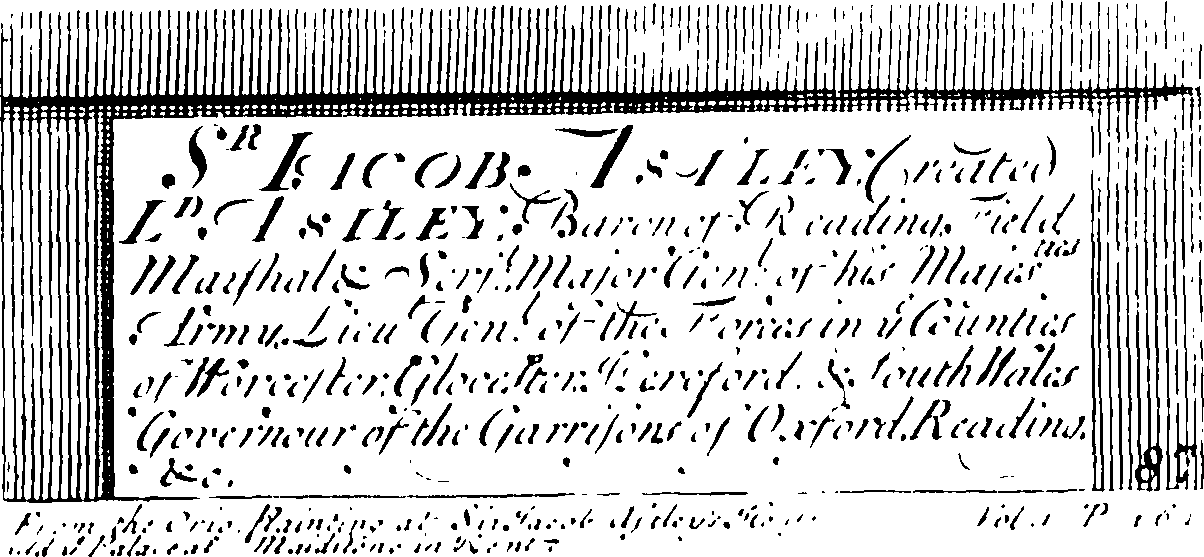 SR IACOB ASTLEY (Created
LD. ASTLEY, Baron of Reading, Field
Marshal & Serjt. Major Genl. of his Majesties
Army, Lieut Genl. of the Forces in ye Counties
of Worcester, Glocester, Hereford, & South Wales
Governour of the Garrisons of Oxford, Reading,
&c.
87
From the Orig. Painting at Sir Jacob Astley's
old Palace at Maidstone in Kent
Vol. 1 P.